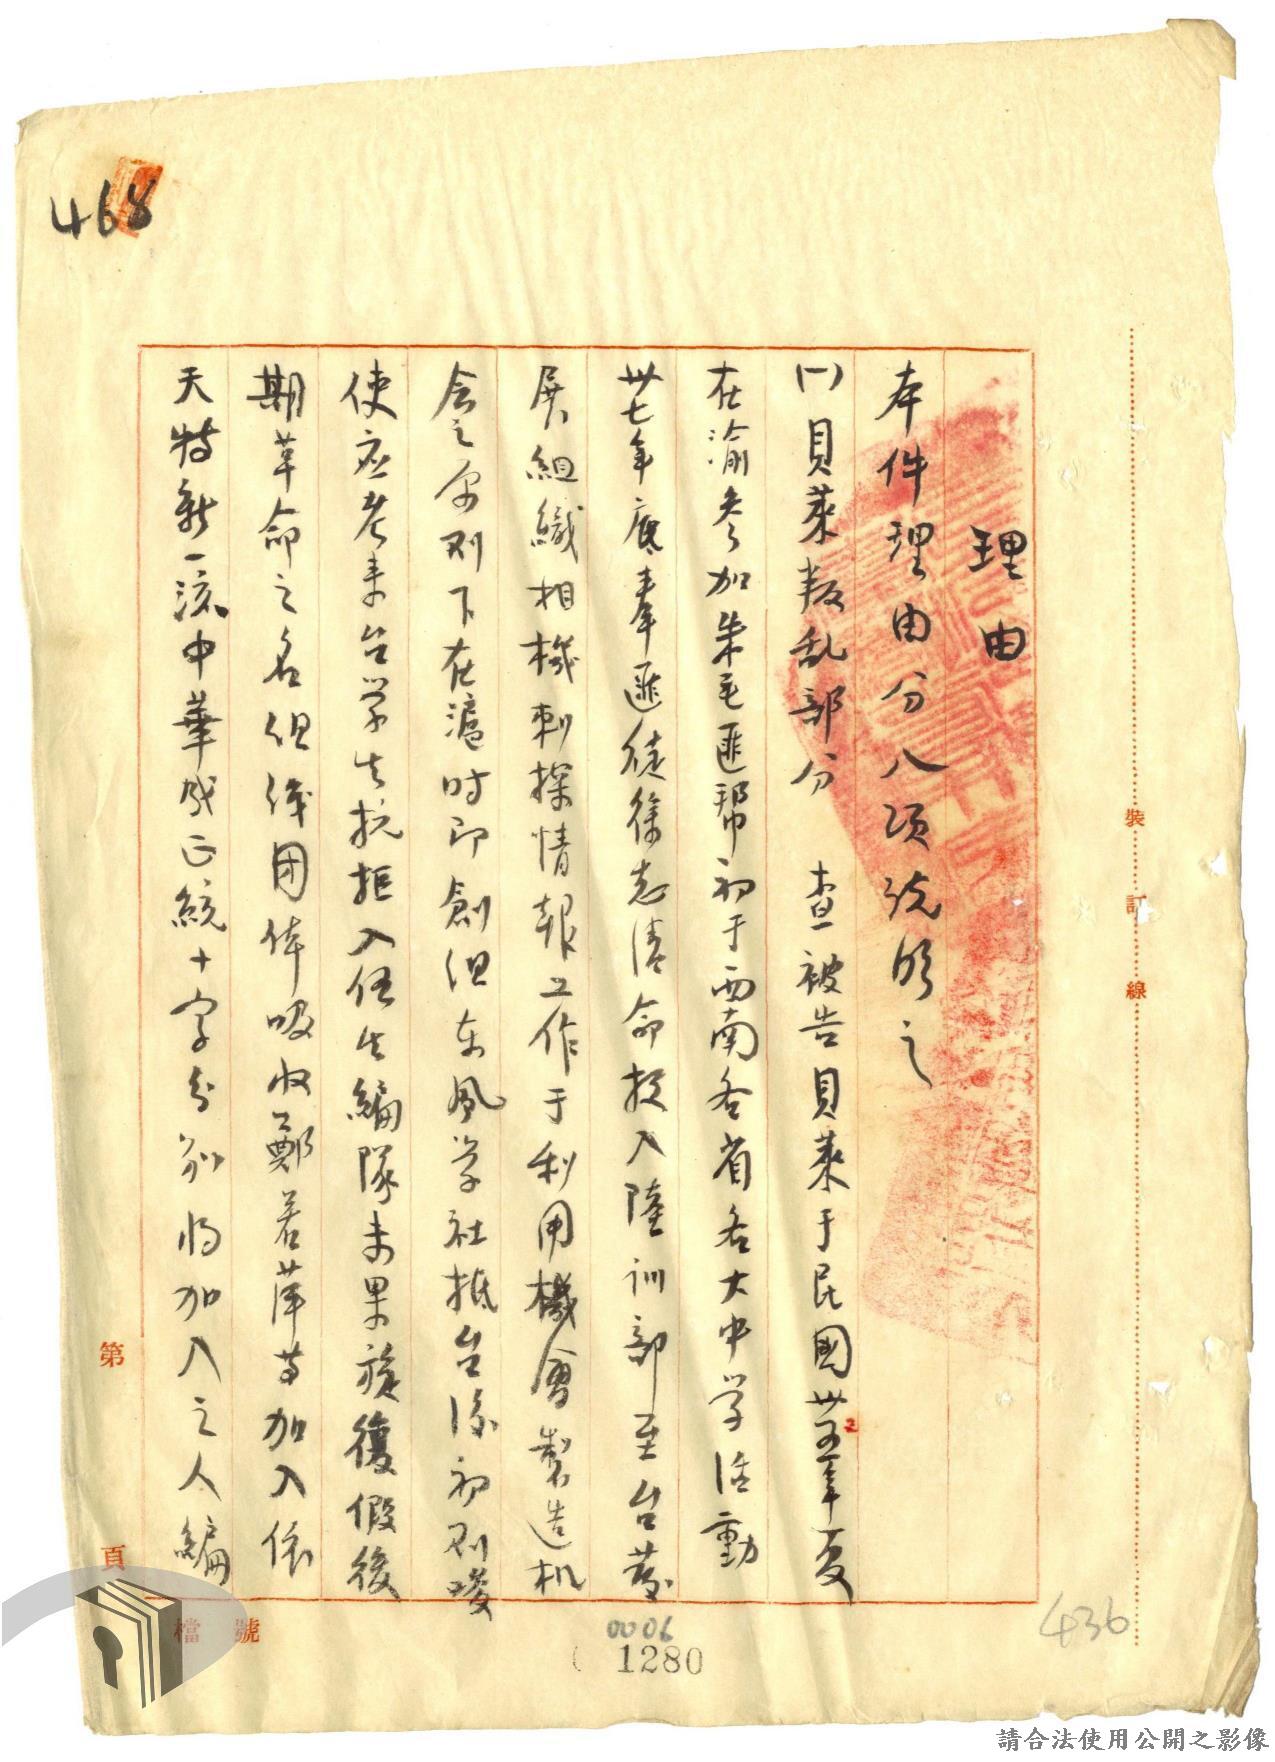 468
理由
本件理由分八項說明之
(一)貝萊叛乱部分　查被告貝萊于民國卅五年夏
在渝參加朱毛匪幫初于西南各省各大中学活動
卅七年底奉匪徒徐志清命投入陸訓部至台發
展組織相機刺探情報工作于利用機會製造机
会之原则下在滬时即創组东風学社抵台後初则唆
使应考来台学生抗拒入伍生編隊未果旋復假後
期革命之名组織团体吸收鄭若萍等加入依
天特新一流中華成正統十字分别将加入之人編
裝訂線
第
頁
檔號
0006
1280
436
請合法使用公開之影像